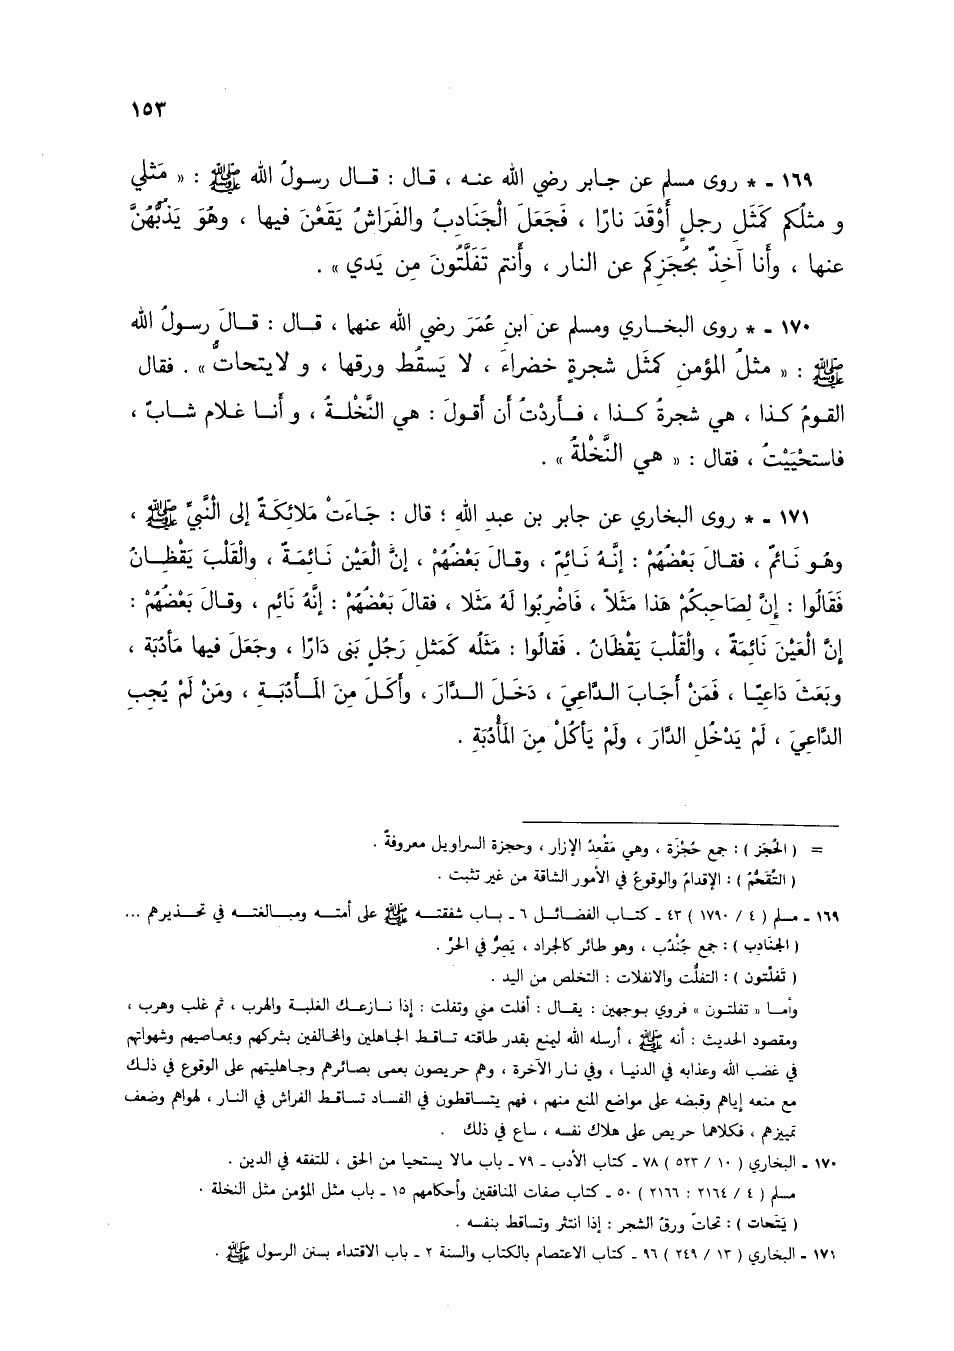 ١٥٣
١٦٩ - * روى مسلم عن جابر رضي الله عنـه ، قـال : قـال رسـولُ الله ﷺ : « مَثَلي
و مثلُكم كَمَثَل رجلٍ أَوْقَدَ نارًا ، فَجَعَلَ الْجَنَادِبُ والفَرَاشُ يَقَعْنَ فيها ، وهُوَ يَذُبُّهُنَّ
عنها ، وأَنا آخِذٌ بحُجَزِكم عن النار ، وأنتم تَفَلَّتُونَ مِن يَدي » .
١٧٠ - * روى البخـاري ومسلم عن ابن عُمَرَ رضي الله عنهما ، قـال : قـالَ رسولُ الله
ﷺ : « مثلُ المؤمنِ كمثَل شجرةٍ خضراءَ ، لا يَسقُط ورقها ، و لا يتحاتُّ » . فقال
القـومُ كـذا ، هي شجرةُ كـذا ، فـأَردْتُ أن أقولَ : هي النَّخْلـةُ ، و أَنـا غـلام شـابٌ ،
فاستحْيَيْتُ ، فقال : « هي النَّخْلةُ » .
١٧١ - * روى البخاري عن جابر بن عبد الله ؛ قال : جَـاءَتْ مَلائِكَـةٌ إلى النَّبيِّ ﷺ ،
وهُـو نَـائمٌ ، فقـالَ بَعْضُهُمْ : إنَّـهُ نَـائِمٌ ، وقـالَ بَعْضُهُمْ ، إنَّ الْعَيْن نَـائِمَـةٌ ، والْقَلْبَ يَقْظَـانُ
فَقَالُوا : إنَّ لِصَاحِبِكُمْ هَذا مَثَلاً ، فَاضْرِبُوا لَهُ مَثَلا ، فقالَ بَعْضُهُمْ : إنَّهُ نَائِم ، وقـالَ بَعْضُهُمْ :
إنَّ الْعَيْنَ نَائِمَةٌ ، والْقَلْبَ يَقْظَانُ . فَقَالُوا : مَثَلُه كَمَثل رَجُلٍ بَنى دَارًا ، وجعَلَ فيها مَأدُبَة ،
وبَعَثَ دَاعِيًـا ، فَمَنْ أَجَابَ الـدَّاعِيَ ، دَخَلَ الـدَّارَ ، وأَكَـلَ مِنَ المَـأْدُبَـةِ ، ومَنْ لَمْ يُجِبِ
الدَّاعِيَ ، لَمْ يَدْخُلِ الدَّارَ ، ولَمْ يَأكُلْ مِنَ المَأْدُبَةِ .
= ( الحُجَز ) : جمع حُجْزَة ، وهي مَقْعِدُ الإزار ، وحجزة السراويل معروفةٌ .
( التَّقَحُّمُ ) : الإقدامُ والوقوعُ في الأمور الشاقة من غير تثبت .
١٦٩ - مسلم ( ٤ / ١٧٩٠ ) ٤٣ - كتـاب الفضـائـل ٦ - بـاب شفقتـه ﷺ على أمتـه ومبـالغتـه في تحـذيرهم ...
( الجنَادِب ) : جمع جُنْدُب ، وهو طائر كالجراد ، يَصِرُّ في الحرِّ .
( تَفلَّتون ) : التفلُّت والانفلات : التخلص من اليد .
وأمـا « تفلتـون » فروي بـوجهين : يقـال : أفلت مني وتفلت : إذا نـازعـك الغلبـة والهرب ، ثم غلب وهرب ،
ومقصود الحديث : أنه ﷺ ، أرسله الله ليمنع بقدر طاقته تساقـط الجاهلين والمخالفين بشركهم وبمعاصيهم وشهواتهم
في غضب الله وعذابه في الدنيا ، وفي نار الآخرة ، وهم حريصون بعمى بصائرهم وجاهليتهم على الوقوع في ذلـك
مع منعه إياهم وقبضه على مواضع المنع منهم ، فهم يتساقطون في الفساد تساقط الفراش في النار ، لهواهم وضعف
تمييزهم ، فكلاهما حريص على هلاك نفسه ، ساع في ذلك .
١٧٠ - البخاري ( ١٠ / ٥٢٣ ) ٧٨ - كتاب الأدب - ٧٩ - باب مالا يستحيا من الحق ، للتفقه في الدين .
مسلم ( ٤ / ٢١٦٤ : ٢١٦٦ ) ٥٠ - كتاب صفات المنافقين وأحكامهم ١٥ - باب مثل المؤمن مثل النخلة .
( يَتَحات ) : تحاتّ ورقُ الشجر : إذا انتثر وتساقط بنفسه .
١٧١ - البخاري ( ١٣ / ٢٤٩ ) ٩٦ - كتاب الاعتصام بالكتاب والسنة ٢ - باب الاقتداء بسنن الرسول ﷺ .